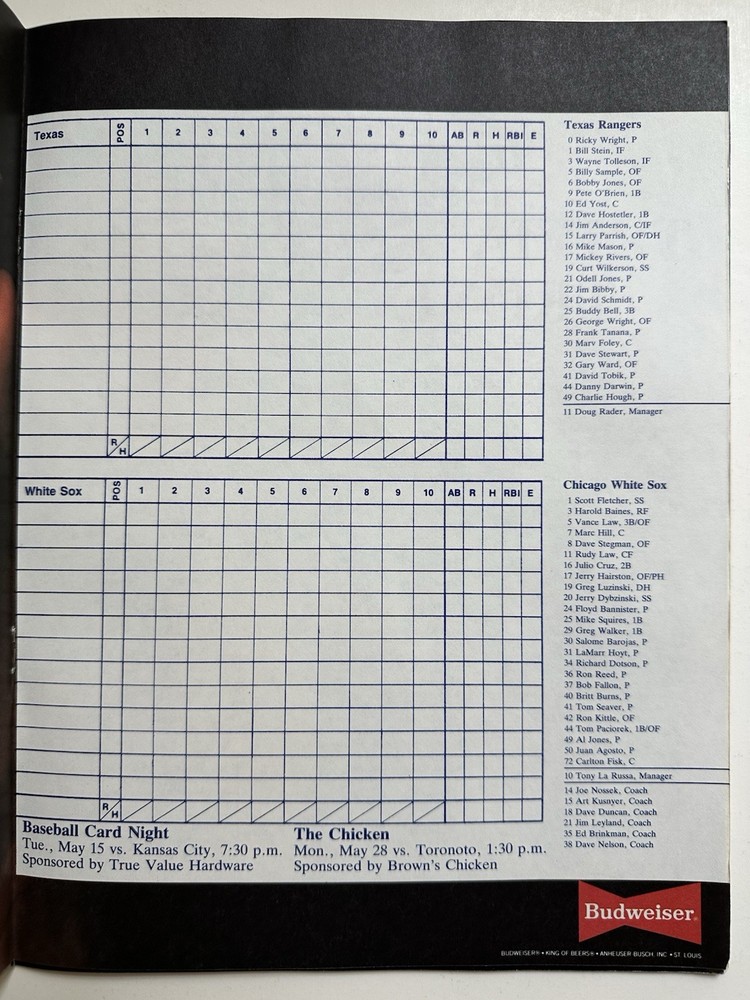 Texas POS 1 2 3 4 5 6 7 8 9 10 AB R H RBI E
R/H
Texas Rangers
0 Ricky Wright, P
1 Bill Stein, IF
3 Wayne Tolleson, IF
5 Billy Sample, OF
6 Bobby Jones, OF
9 Pete O'Brien, 1B
10 Ed Yost, C
12 Dave Hostetler, 1B
14 Jim Anderson, C/IF
15 Larry Parrish, OF/DH
16 Mike Mason, P
17 Mickey Rivers, OF
19 Curt Wilkerson, SS
21 Odell Jones, P
22 Jim Bibby, P
24 David Schmidt, P
25 Buddy Bell, 3B
26 George Wright, OF
28 Frank Tanana, P
30 Marv Foley, C
31 Dave Stewart, P
32 Gary Ward, OF
41 David Tobik, P
44 Danny Darwin, P
49 Charlie Hough, P
11 Doug Rader, Manager
White Sox POS 1 2 3 4 5 6 7 8 9 10 AB R H RBI E
R/H
Chicago White Sox
1 Scott Fletcher, SS
3 Harold Baines, RF
5 Vance Law, 3B/OF
7 Marc Hill, C
8 Dave Stegman, OF
11 Rudy Law, CF
16 Julio Cruz, 2B
17 Jerry Hairston, OF/PH
19 Greg Luzinski, DH
20 Jerry Dybzinski, SS
24 Floyd Bannister, P
25 Mike Squires, 1B
29 Greg Walker, 1B
30 Salome Barojas, P
31 LaMarr Hoyt, P
34 Richard Dotson, P
36 Ron Reed, P
37 Bob Fallon, P
40 Britt Burns, P
41 Tom Seaver, P
42 Ron Kittle, OF
44 Tom Paciorek, 1B/OF
49 Al Jones, P
50 Juan Agosto, P
72 Carlton Fisk, C
10 Tony La Russa, Manager
14 Joe Nossek, Coach
15 Art Kusnyer, Coach
18 Dave Duncan, Coach
21 Jim Leyland, Coach
35 Ed Brinkman, Coach
38 Dave Nelson, Coach
Baseball Card Night
Tue., May 15 vs. Kansas City, 7:30 p.m.
Sponsored by True Value Hardware
The Chicken
Mon., May 28 vs. Toronoto, 1:30 p.m.
Sponsored by Brown's Chicken
Budweiser®
BUDWEISER® • KING OF BEERS® • ANHEUSER BUSCH, INC. • ST. LOUIS